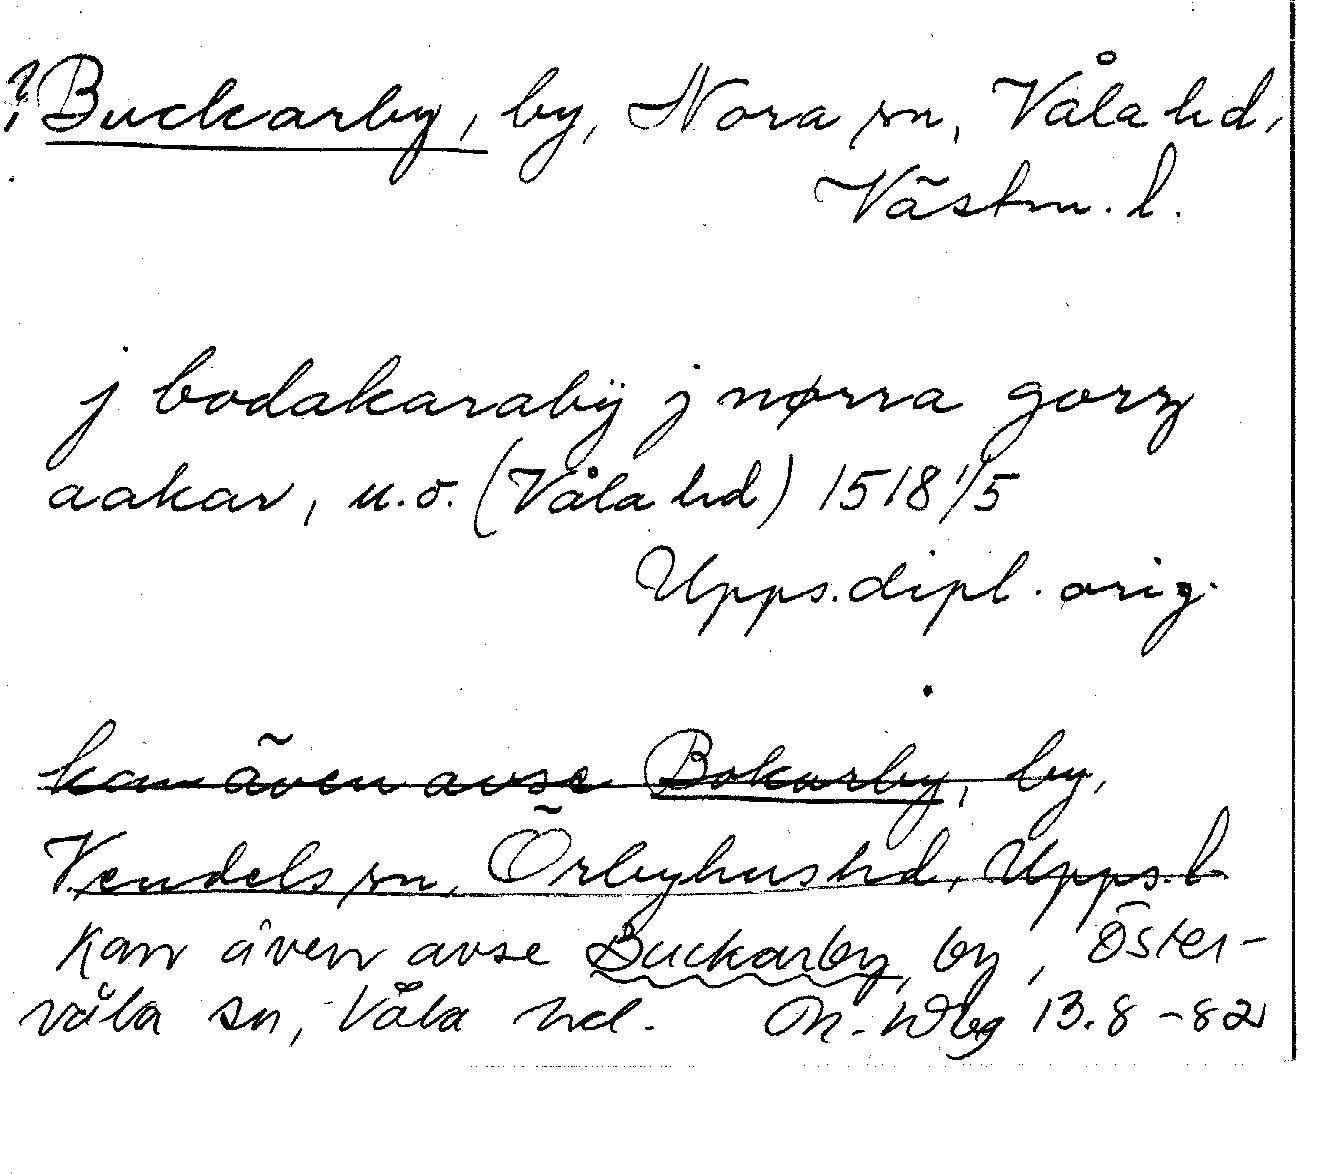 ? Buckarby, by, Nora sn, Våla hd,
Västm. l.
j bodakarabÿ j nørra gorz
aakar, u.o. (Våla hd) 1518 1/5
Upps.dipl. orig.
kan även avse Bokarby, by,
Vendels sn, Örbyhus hd, Upps. l
Kan även avse Buckarby, by, Öster-
våla sn, Våla hd. M. Wbg 13.8-82